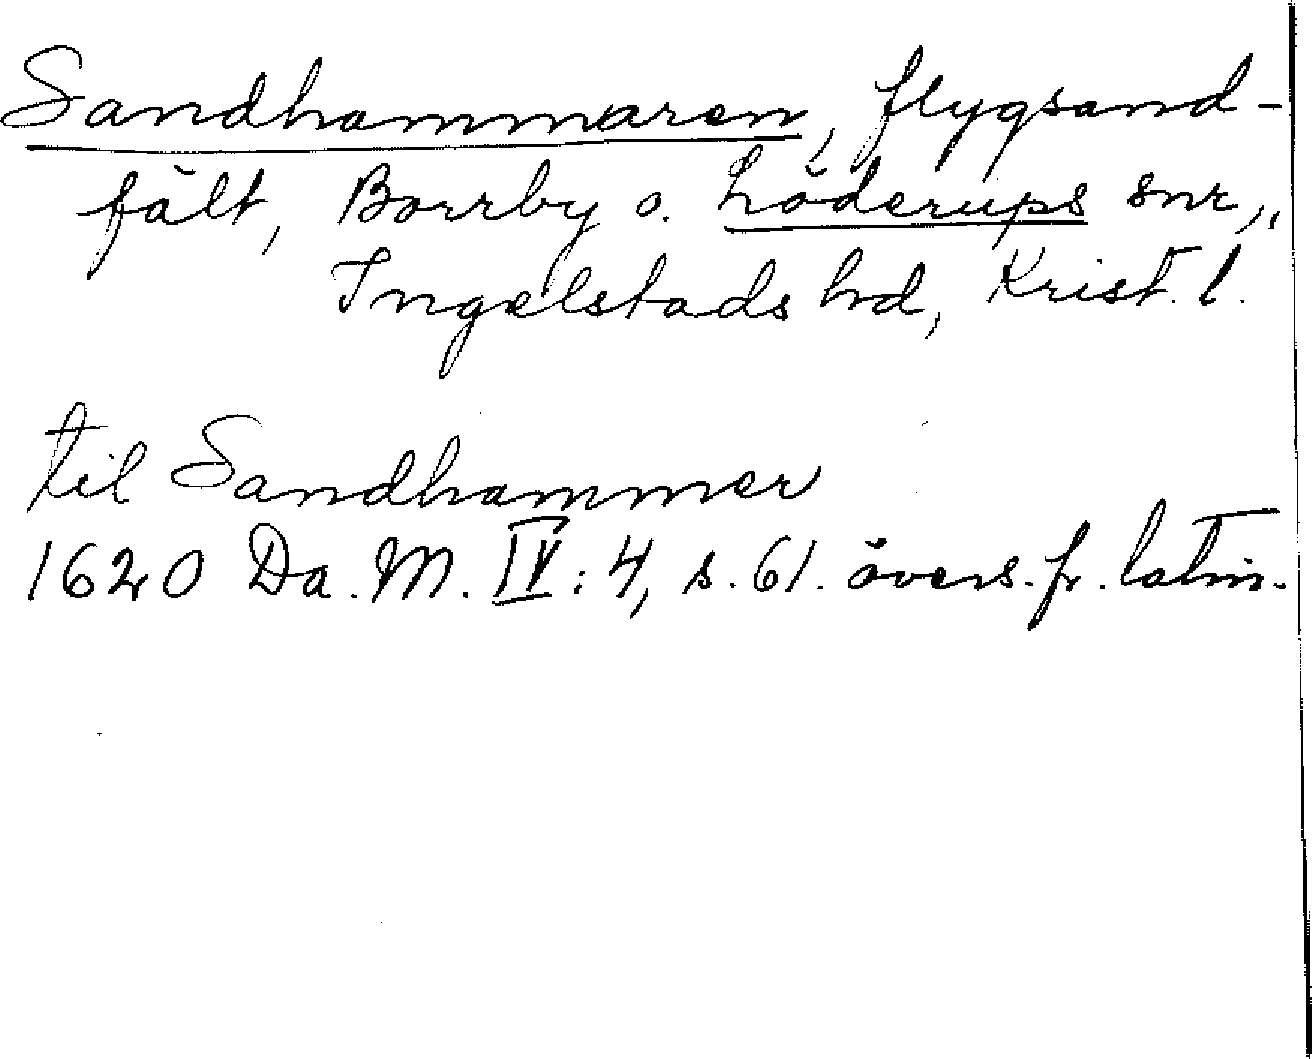 Sandhammaren, flygsand-
fält, Borrby o. Löderups snr,
Ingelstads hd, Krist. l.
til Sandhammer
1620 Da. M. IV: 4, s. 61. övers. fr. latin.